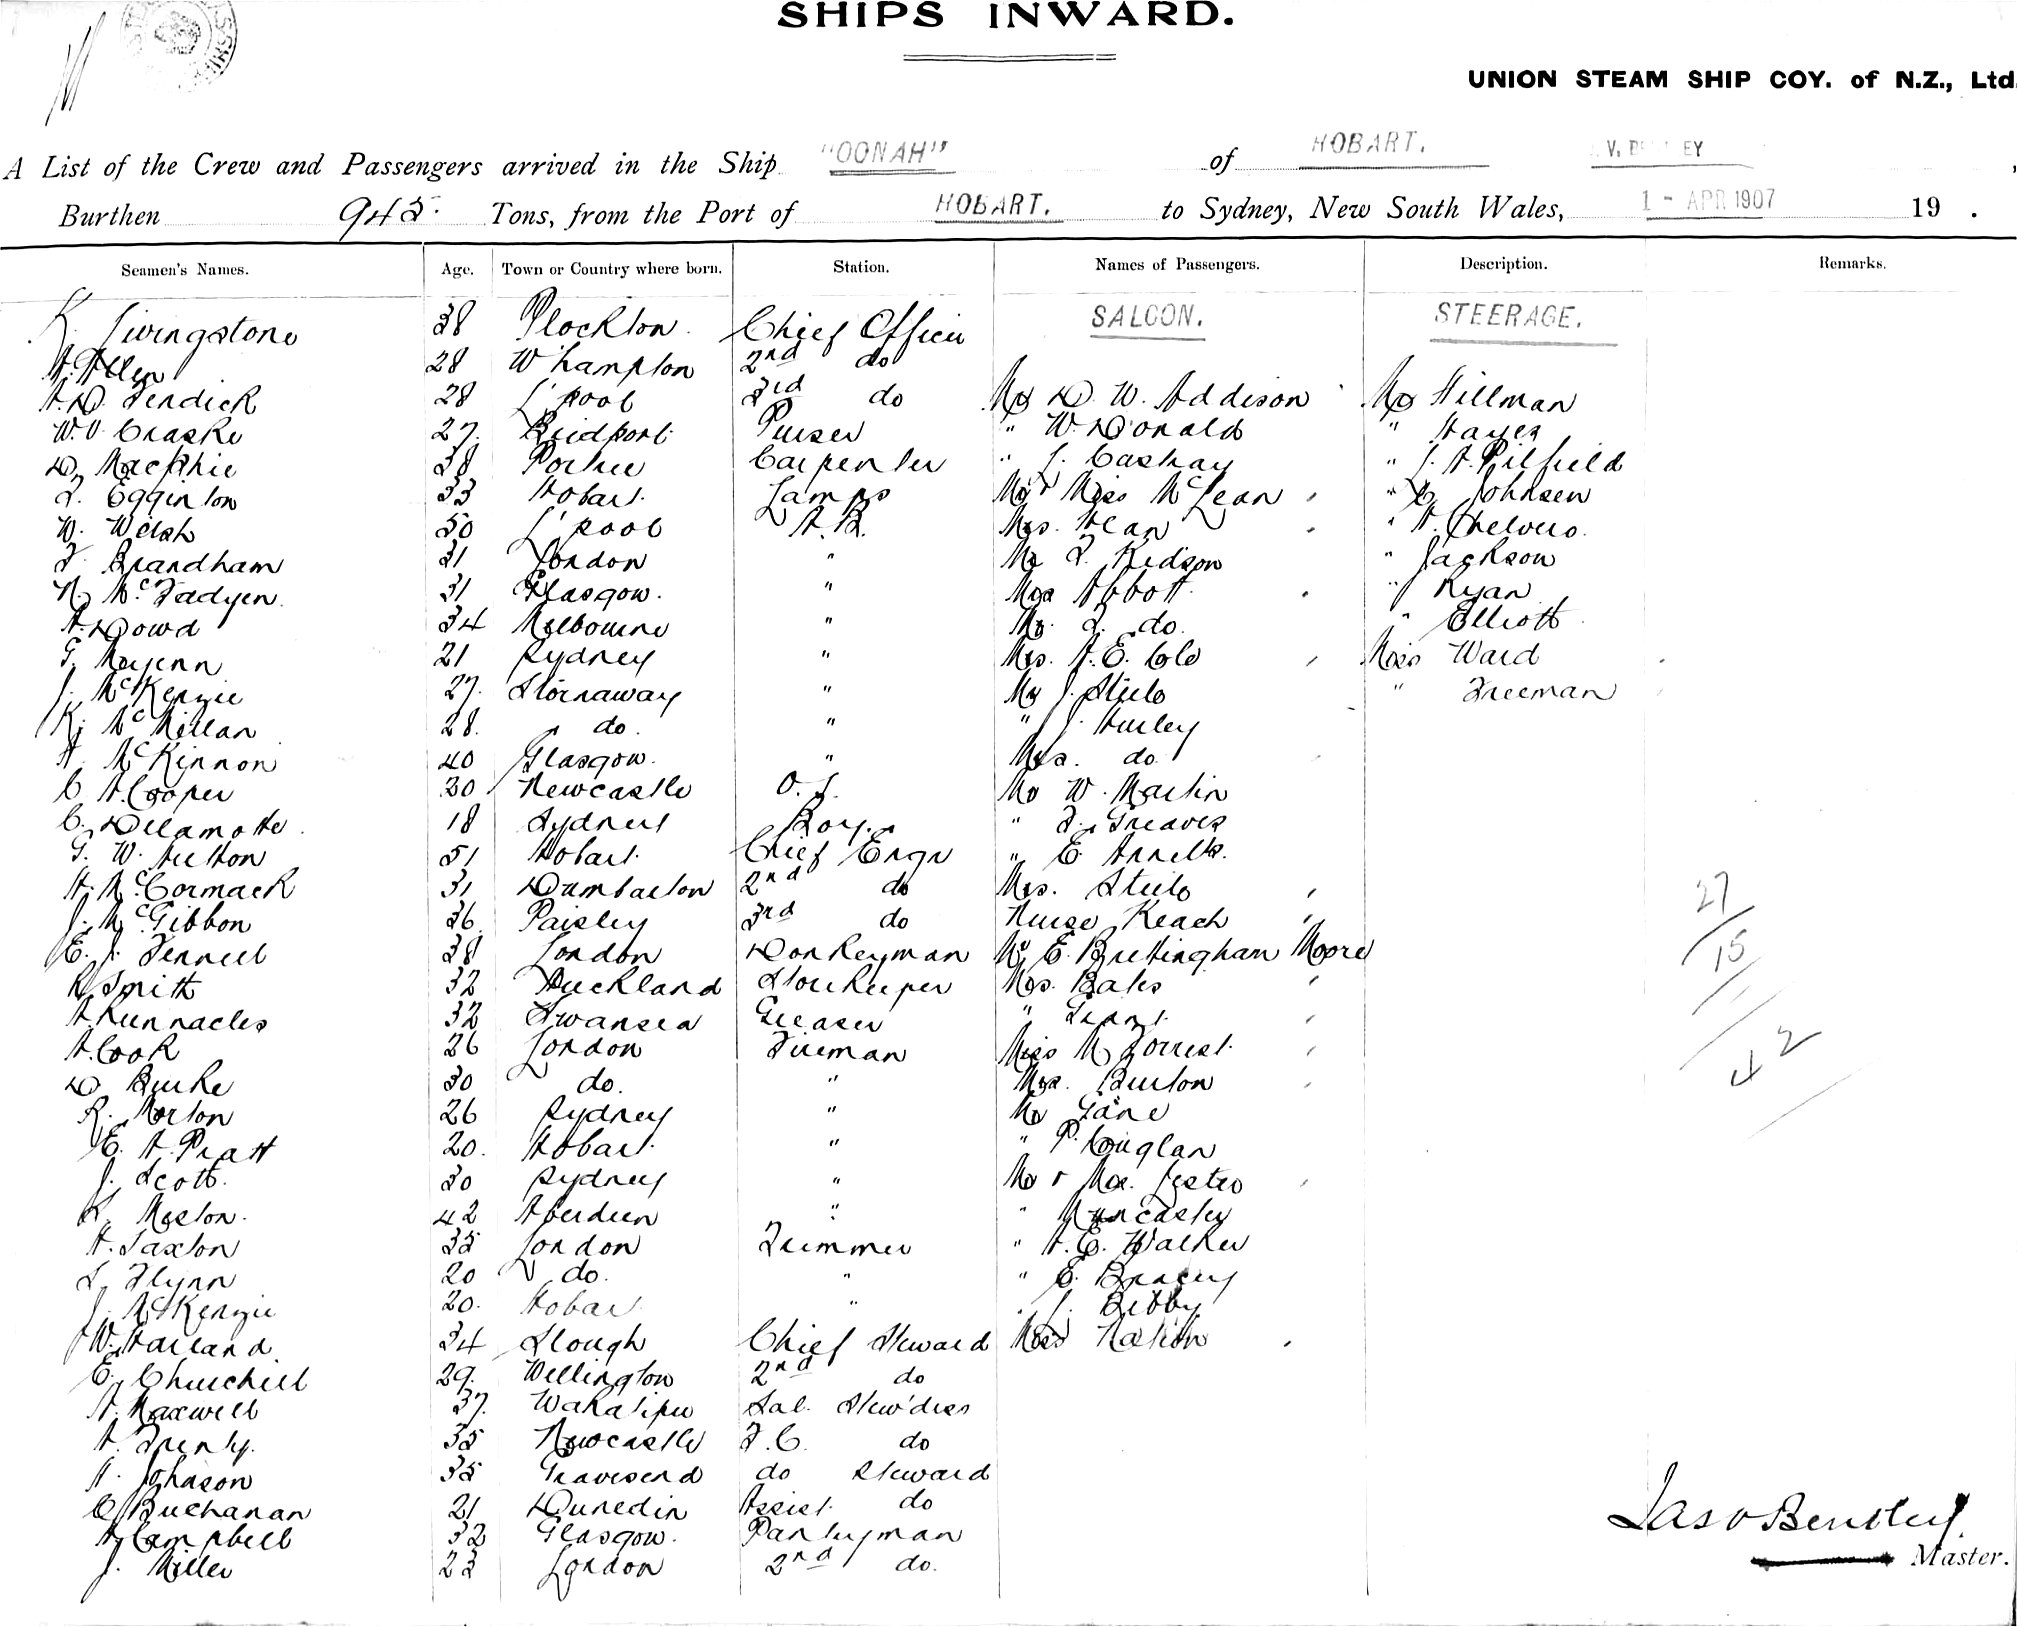 SHIPS INWARD.
UNION STEAM SHIP COY. of N.Z., Ltd.
A List of the Crew and Passengers arrived in the Ship "OONAH" of HOBART.
Burthen 945. Tons, from the Port of HOBART. to Sydney, New South Wales, 1 - APR 1907 19 .
Seamen's Names. Age. Town or Country where born. Station. Names of Passengers. Description. Remarks.
SALOON. STEERAGE.
K. Livingstone 38 Plockton. Chief Officer
A. Allen 28 W'hampton 2nd do
A.D. Fendick 28 L'pool 3rd do Mr D. W. Addison Mr Hillman
W.V. Craske 27. Bridport. Purser " W. Donald " Hayes
D. MacPhie 38 Portree Carpenter " J. Cashay " J. A. Pilfield
F. Egginton 33 Hobart. Lamps Mr & Miss McLean " C. Johnsen
W. Welsh 50 L'pool A.B. Mrs. Hean " A. Chelvers.
F. Brandham 31 London " Mr F. Kidson " Jackson
N. McFadyen. 31 Glasgow. " Mrs Abbott. " Ryan
A. Dowd 34 Melbourne " Mr. F. do. " Elliott
G. Magenn 21 Sydney " Mrs. A. E. Cole Miss Ward
J. McKenzie 27. Stornaway " Mr J. Steele " Freeman
K. McMillan 28. do. " " J. Hurley
A. McKinnon 40 Glasgow. " Mrs. do.
C. A. Cooper 30 Newcastle O.S. Mr W. Martin
C. Delamotte. 18 Sydney Boy. " F. Greaves
G. W. Hutton 51 Hobart. Chief Engr " E. Annells.
A. McCormack 31 Dumbarton 2nd do Mrs. Steele
J. McGibbon 36 Paisley 3rd do Nurse Reach
E. J. Fennell 38 London Donkeyman Mr E. Brettingham Moore
R. Smith 32 Auckland Storekeeper Mrs. Bates
A. Runnacles 32 Swansea Greaser " Grant.
A. Cook 26 London Fireman Miss M. Forrest.
D. Burke 30 do. " Mrs. Burton
R. Morton 26 Sydney " Mr Lane
E. A. Pratt 20. Hobart. " " P. Couglan
J. Scott. 30 Sydney " Mr & Mrs. Lester
K. Meston. 42 Aberdeen " " Muncaster
A. Saxton 35 London Trimmer " A. E. Walker
L. Flynn 20 do. " " E. Bracey
J. McKenzie 20. Hobart " " J. Bibby
W. Harland 34 Slough Chief Steward Miss Nation
E. Churchill 29. Wellington 2nd do
A. Maxwell 37. Wakatipu Sal. Stew'dess
A. Trenly. 35 Newcastle F.C. do
A. Johnson 35 Gravesend do Steward
C. Buchanan 21 Dunedin Assist. do
A. Campbell 32 Glasgow. Pantryman
J. Miller 23 London 2nd do.
27
15
42
Jas V Bentley
Master.